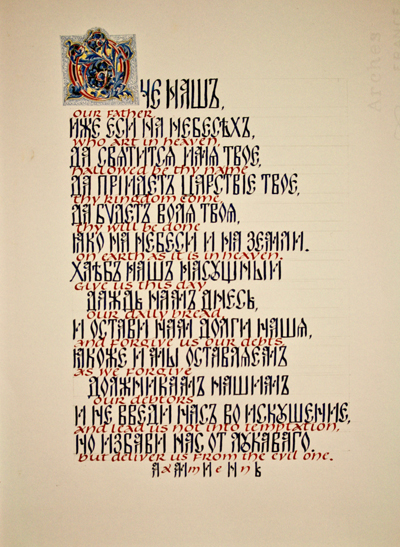 ОЧЕ НАШЪ,
our father
ИЖЕ ЕСИ НА НЕБЕСѢХЪ,
who art in heaven,
ДА СВЯТИТСЯ ИМЯ ТВОЕ,
hallowed be thy name
ДА ПРІИДЕТЪ ЦАРСТВІЕ ТВОЕ,
thy kingdom come,
ДА БУДЕТЪ ВОЛЯ ТВОЯ,
thy will be done
ІАКО НА НЕБЕСИ И НА ЗЕМЛИ.
on earth as it is in heaven.
ХЛѢБЪ НАШЪ НАСУЩНЫЙ
give us this day
ДАЖДЬ НАМЪ ДНЕСЬ,
our daily bread,
И ОСТАВИ НАМ ДОЛГИ НАШЯ,
and forgive us our debts
ІАКОЖЕ И МЫ ОСТАВЛЯЕМЪ
as we forgive
ДОЛЖНИКАМЪ НАШИМЪ
our debtors
И НЕ ВВЕДИ НАСЪ ВО ИСКУШЕНИЕ,
and lead us not into temptation,
НО ИЗБАВИ НАС ОТ ЛУКАВАГО.
but deliver us from the evil one.
АaМmИeНnЬ
Arches